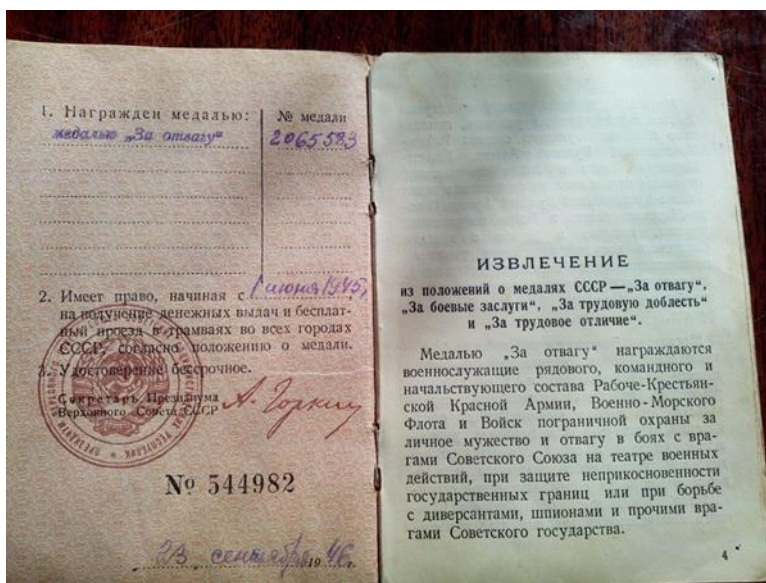 1. Награжден медалью:
№ медали
медалью „За отвагу"
2065583
2. Имеет право, начиная с 1 июня 1945 г.
на получение денежных выдач и бесплат-
ный проезд в трамваях во всех городах
СССР, согласно положению о медали.
3. Удостоверение бессрочное.
Секретарь Президиума
Верховного Совета СССР
А. Горкин
№ 544982
23 сентября 1946 г.
ИЗВЛЕЧЕНИЕ
из положений о медалях СССР — „За отвагу",
„За боевые заслуги", „За трудовую доблесть"
и „За трудовое отличие".
Медалью „За отвагу" награждаются
военнослужащие рядового, командного и
начальствующего состава Рабоче-Крестьян-
ской Красной Армии, Военно-Морского
Флота и Войск пограничной охраны за
личное мужество и отвагу в боях с вра-
гами Советского Союза на театре военных
действий, при защите неприкосновенности
государственных границ или при борьбе
с диверсантами, шпионами и прочими вра-
гами Советского государства.
4